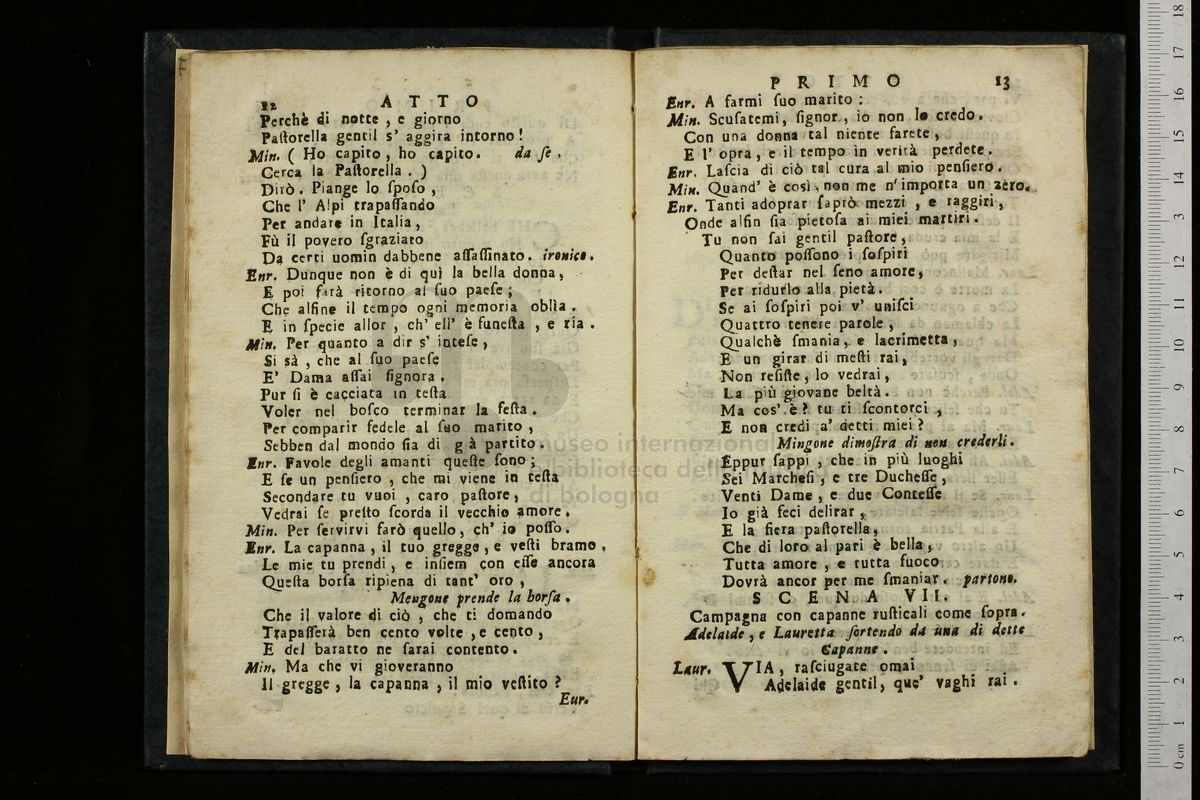 12 ATTO
Perchè di notte , e giorno
Paſtorella gentil s' aggira intorno !
Min. ( Ho capito , ho capito. da ſe .
Cerca la Paſtorella . )
Dirò . Piange lo ſpoſo ,
Che l' Alpi trapaſſando
Per andare in Italia ,
Fù il povero ſgraziato
Da certi uomin dabbene aſſaſſinato. ironico.
Enr. Dunque non è di quì la bella donna ,
E poi farà ritorno al ſuo paeſe ;
Che alfine il tempo ogni memoria oblìa .
E in ſpecie allor , ch' ell' è funeſta , e ria .
Min. Per quanto a dir s' inteſe ,
Si sà , che al ſuo paeſe
E' Dama aſſai ſignora .
Pur ſi è cacciata in teſta
Voler nel boſco terminar la feſta .
Per comparir fedele al ſuo marito ,
Sebben dal mondo ſia di g à partito .
Enr. Favole degli amanti queſte ſono ;
E ſe un penſiero , che mi viene in teſta
Secondare tu vuoi , caro paſtore ,
Vedrai ſe preſto ſcorda il vecchio amore .
Min. Per ſervirvi farò quello , ch' io poſſo .
Enr. La capanna , il tuo gregge , e veſti bramo ,
Le mie tu prendi , e inſiem con eſſe ancora
Queſta borſa ripiena di tant' oro ,
Mengone prende la borſa .
Che il valore di ciò , che ti domando
Trapaſſerà ben cento volte , e cento ,
E del baratto ne ſarai contento .
Min. Ma che vi gioveranno
Il gregge , la capanna , il mio veſtito ?
Eur.
PRIMO 13
Enr. A farmi ſuo marito :
Min. Scuſatemi, ſignor , io non lo credo .
Con una donna tal niente farete ,
E l' opra , e il tempo in verità perdete .
Enr. Laſcia di ciò tal cura al mio penſiero .
Min. Quand' è così , non me n' importa un zero.
Enr. Tanti adoprar ſaprò mezzi , e raggiri ,
Onde alfin ſia pietoſa ai miei martiri .
Tu non ſai gentil paſtore ,
Quanto poſſono i ſoſpiri
Per deſtar nel ſeno amore ,
Per ridurlo alla pietà .
Se ai ſoſpiri poi v' uniſci
Quattro tenere parole ,
Qualchè ſmania , e lacrimetta ,
E un girar di meſti rai ,
Non reſiſte , lo vedrai ,
La più giovane beltà .
Ma cos' è ? tu ti ſcontorci ,
E non credi a' detti miei ?
Mingone dimoſtra di non crederli .
Eppur ſappi , che in più luoghi
Sei Marcheſi , e tre Ducheſſe ,
Venti Dame , e due Conteſſe
Io già feci delirar ,
E la fiera paſtorella ,
Che di loro al pari è bella ,
Tutta amore , e tutta fuoco
Dovrà ancor per me ſmaniar . partono.
SCENA VII.
Campagna con capanne ruſticali come ſopra .
Adelaide , e Lauretta ſortendo da una di dette
Capanne .
Laur. VIA , raſciugate omai
Adelaide gentil, que' vaghi rai .
museo internazionale
biblioteca della
di bologna
0 cm 1 2 3 4 5 6 7 8 9 10 11 12 13 14 15 16 17 18